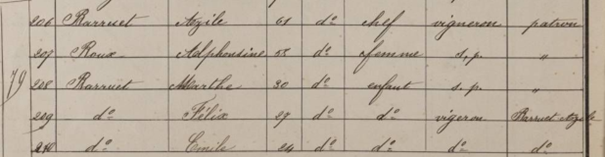 206 Barruet Azile 61 do chef vigneron patron
207 Roux Adphonsine 55 do femme s.p. "
79 208 Barruet Marthe 30 do enfant s.p. "
209 do Félix 27 do do vigeron Barruet Azile
210 do Emile 24 do do do do